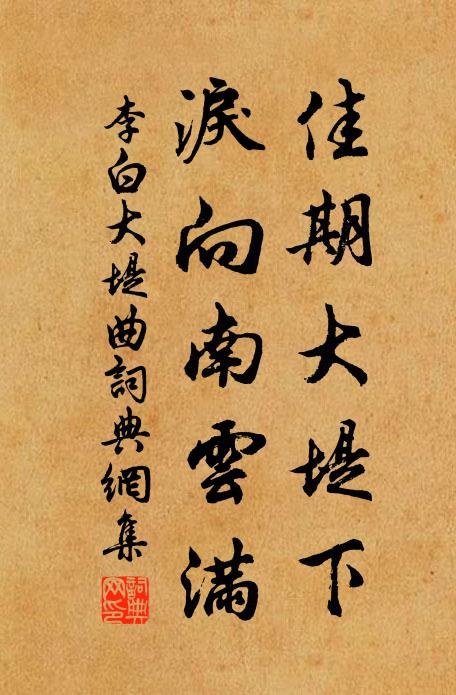 佳期大堤下
淚向南雲滿
李白大堤曲詞典網集
詞典網印